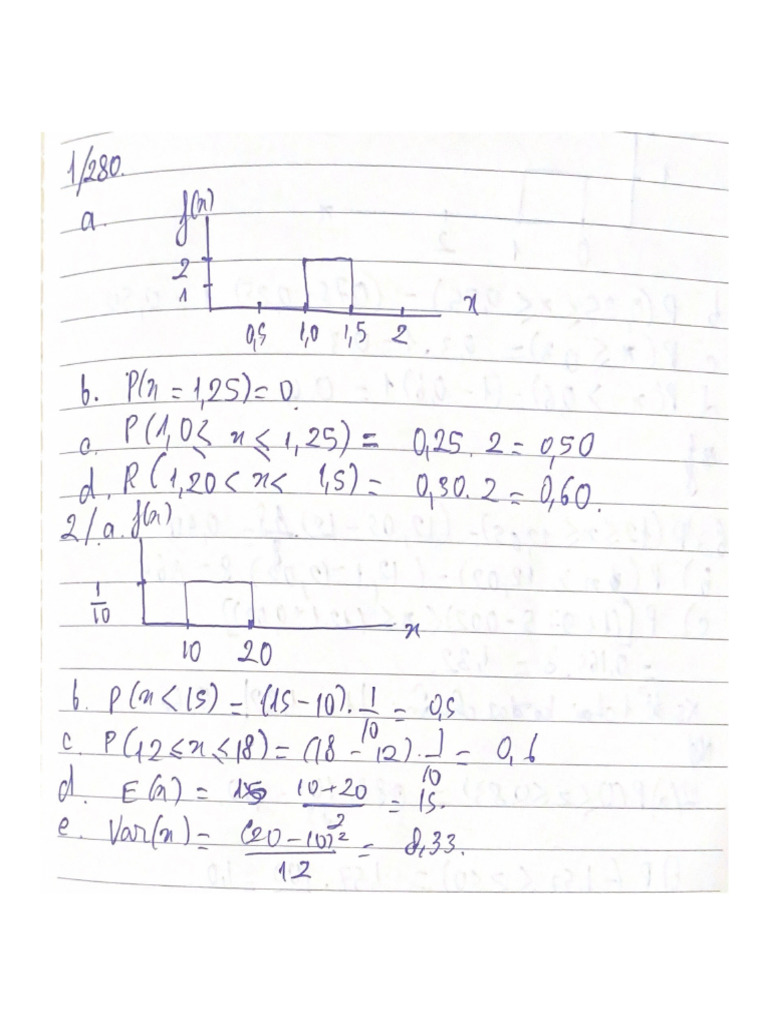 1/280.
a. f(x)
2
1
x
0,5 1,0 1,5 2
b. P(x = 1,25) = 0.
c. P(1,0 ≤ x ≤ 1,25) = 0,25. 2 = 0,50
d. P(1,20 < x < 1,5) = 0,30. 2 = 0,60.
2/. a. f(x)
1/10
x
10 20
b. P(x < 15) = (15 - 10). 1/10 = 0,5
c. P(12 ≤ x ≤ 18) = (18 - 12). 1/10 = 0,6
d. E(x) = (10 + 20)/2 = 15.
e. Var(x) = (20 - 10)²/12 = 8,33.